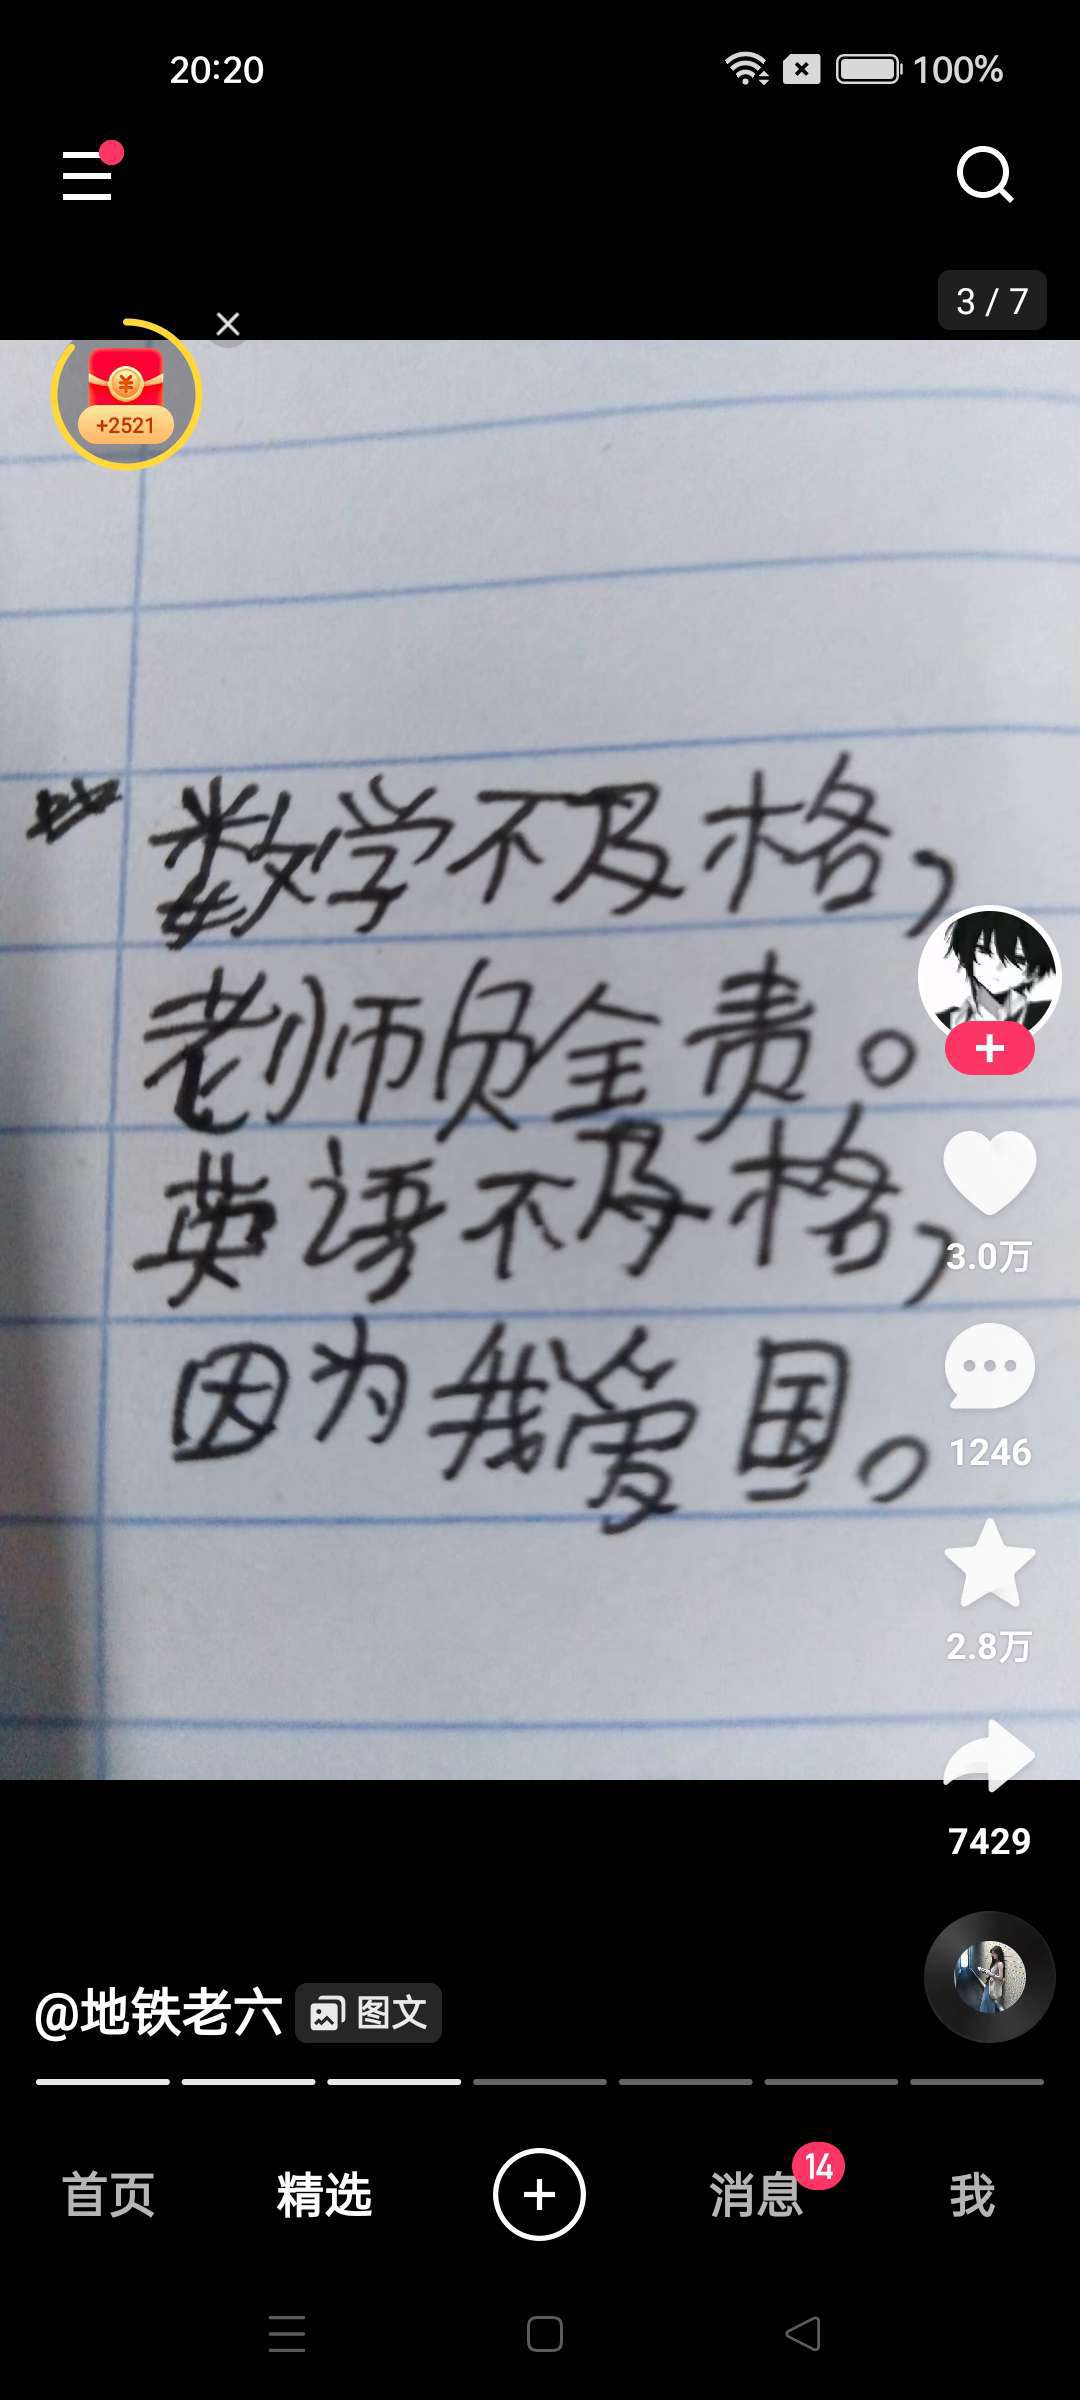 20:20
100%
3 / 7
+2521
数学不及格，
老师负全责。
英语不及格，
因为我爱国。
3.0万
1246
2.8万
7429
@地铁老六 图文
首页 精选 消息 14 我